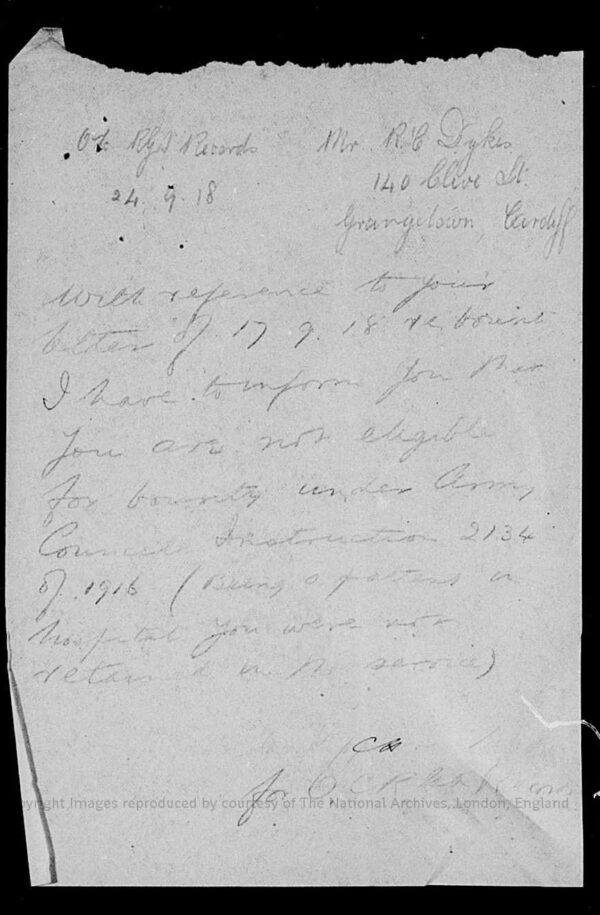 RGA Records
24. 9. 18
Mr. R. C Dykes
140 Clive St.
Grangetown, Cardiff
With reference to your
letter of 17 9. 18 re
I have to inform you
you are not eligible
for bounty under Army
Council Instruction 2134
of 1916 (Being a patient in
hospital you were not
retained in the service)
for
Copyright Images reproduced by courtesy of The National Archives, London, England